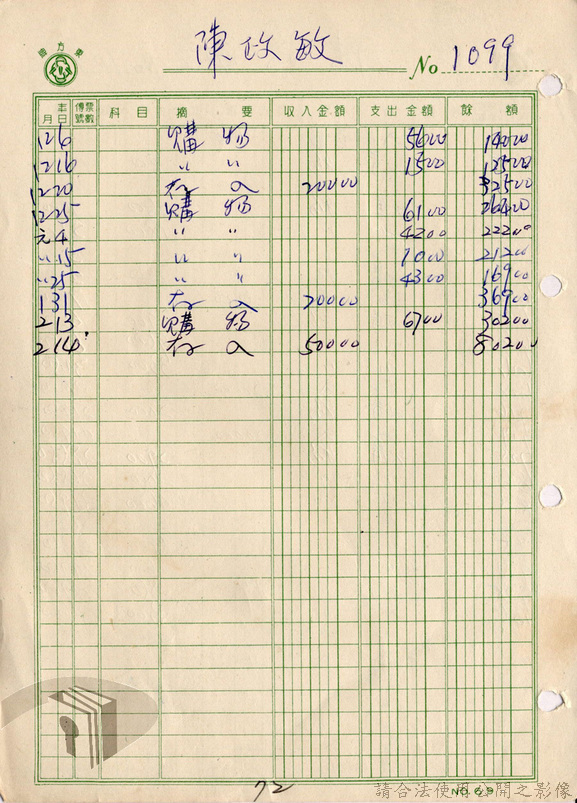 陳政敏
No 1099
年 月 日 傳票號數 科目 摘要 收入金額 支出金額 餘額
12 6 購物 5600 14000
12 16 〃 〃 1500 12500
12 20 存入 20000 32500
12 25 購物 6100 26400
元 4 〃 〃 4200 22200
〃 15 〃 〃 1000 21200
〃 25 〃 〃 4300 16900
1 31 存入 20000 36900
2 13 購物 6700 30200
2 14 存入 50000 80200
72
請合法使用公開之影像